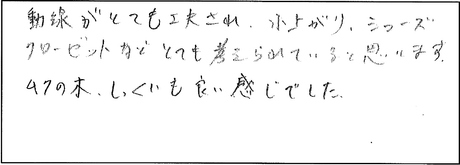 動線がとても工夫され、小上がり、シューズ
クローゼットなど とても考えられていると思います。
ムクの木、しっくいも良い感じでした。